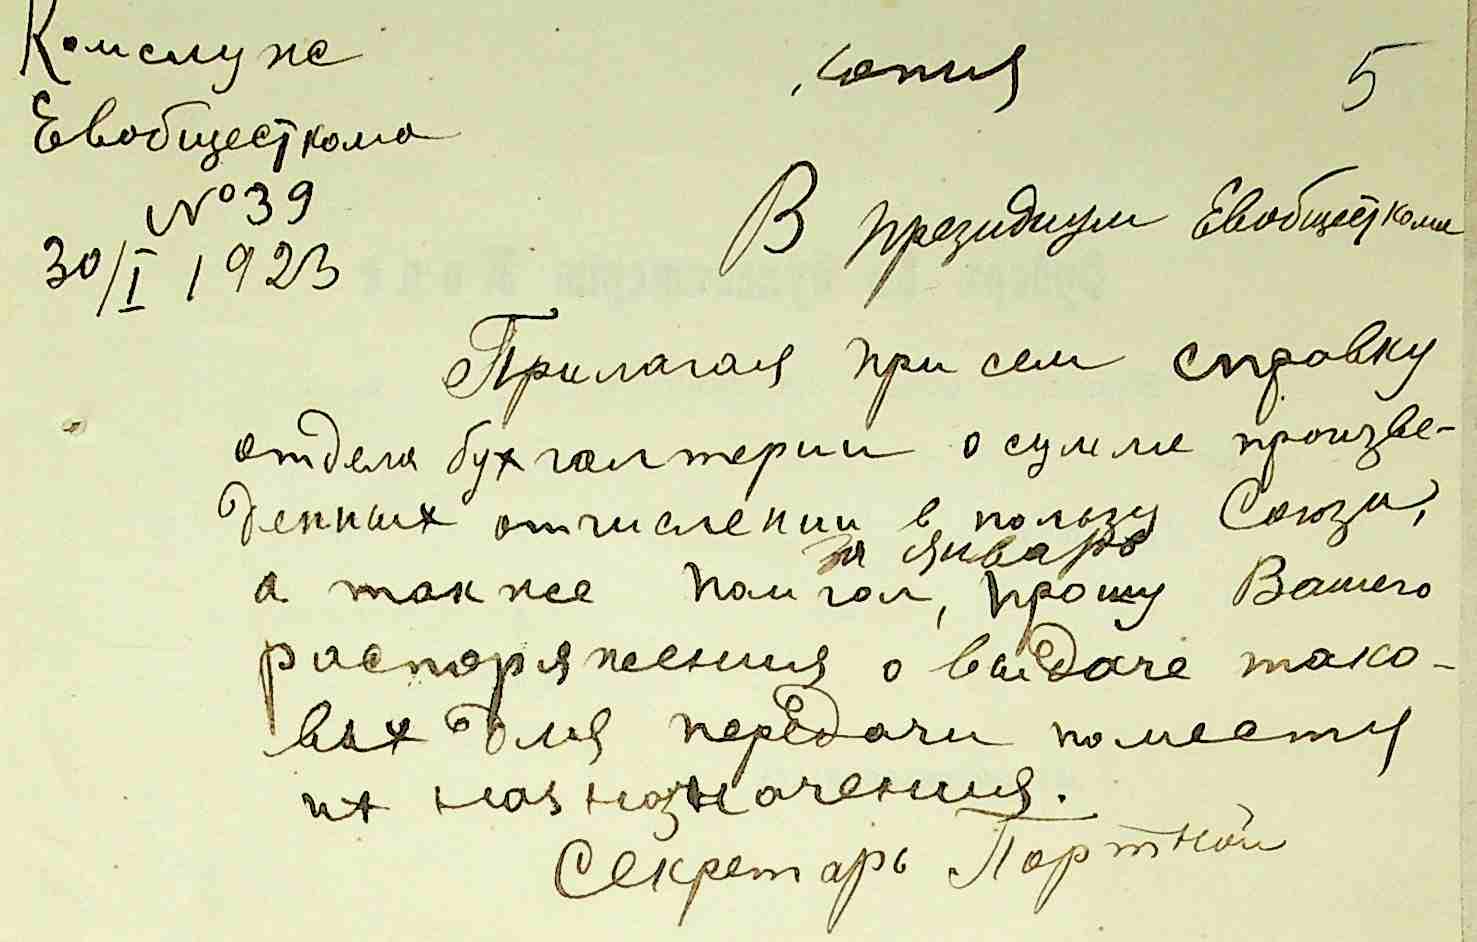 Комслуж
Евобщесткома
№ 39
30/I 1923
копия
5
В президиум Евобщесткома
Прилагая при сем справку
отдела бухгалтерии о сумме произве-
денных отчислении в пользу Союза,
за январь
а также Помгол, прошу Вашего
распоряжения о выдаче тако-
вых для передачи поместу
их назначения.
Секретарь Портной